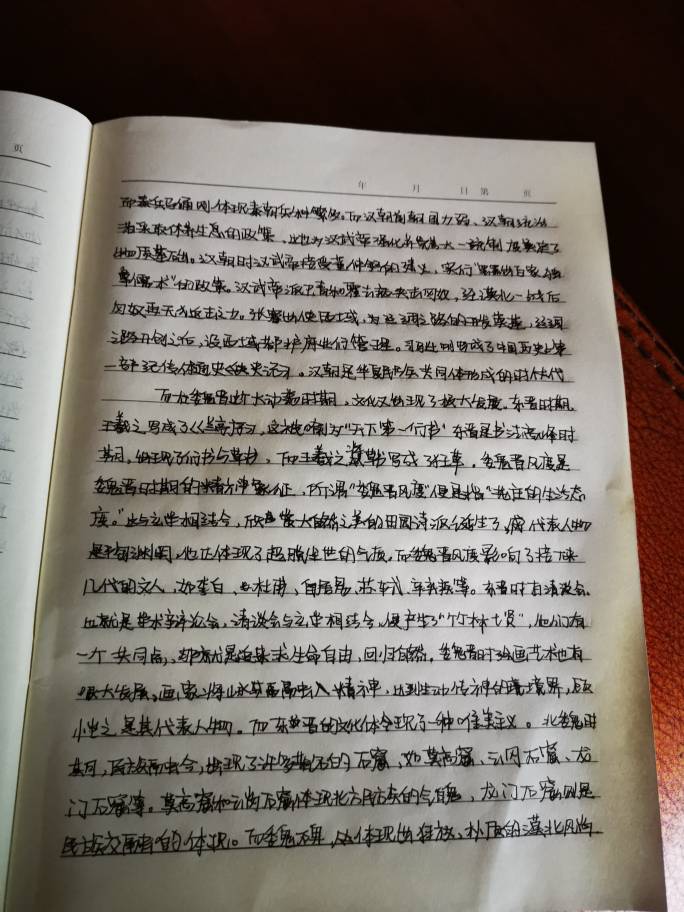 页
年 月 日 第 页
而秦兵马俑则体现秦朝兵种繁多。而汉朝前期国力弱、汉朝统治
者采取休养生息的政策,此也为汉武帝强化并完善大一统制度奠定了
物质基础。汉朝时汉武帝接受董仲舒的建议,实行“罢黜百家独
尊儒术”的政策。汉武帝派卫青和霍去病夹击匈奴,经漠北一战后
匈奴再无反击之力。张骞出使西域,为丝绸之路的开发奠基,丝绸
之路开创之后,设西域都护府进行管理。司马迁则写成了中国历史上第
一部纪传体通史《史记》。汉朝是华夏民族共同体形成的时代
而在魏晋这个大动荡时期,文化又出现了极大发展。东晋时期,
王羲之写成了《兰亭序》,这被誉为“天下第一行书”东晋是书法高峰时
期,出现了行书与草书,而王羲之写成。魏晋风度是
魏晋时期的精神象征,所谓“魏晋风度”便是指“的生活态
度。”此与玄学相结合,欣赏大自然之美的田园诗派诞生了,代表人物
是陶渊明,他体现了超脱尘世的气质。而魏晋风度影响了接下来
几代的文人,如李白、杜甫、白居易、苏轼、辛弃疾等。东晋时有清谈会,
也就是学术辩论会,清谈会与玄学相结合,便产生了“竹林七贤”,他们有
一个共同点,那就是追求生命自由,回归自然。魏晋时绘画艺术也有
极大发展。画家将山水草画出入精神,达到生动传神的境界,顾
恺之是其代表人物。而东晋的文化体现了一种唯美主义。北魏时
期,民族融合,出现了许多著名的石窟,如莫高窟、云冈石窟、龙
门石窟等。莫高窟和云冈石窟体现北方民族的气魄,龙门石窟则是
民族交融的体现。而魏碑,体现出狂放、朴质的漠北风格